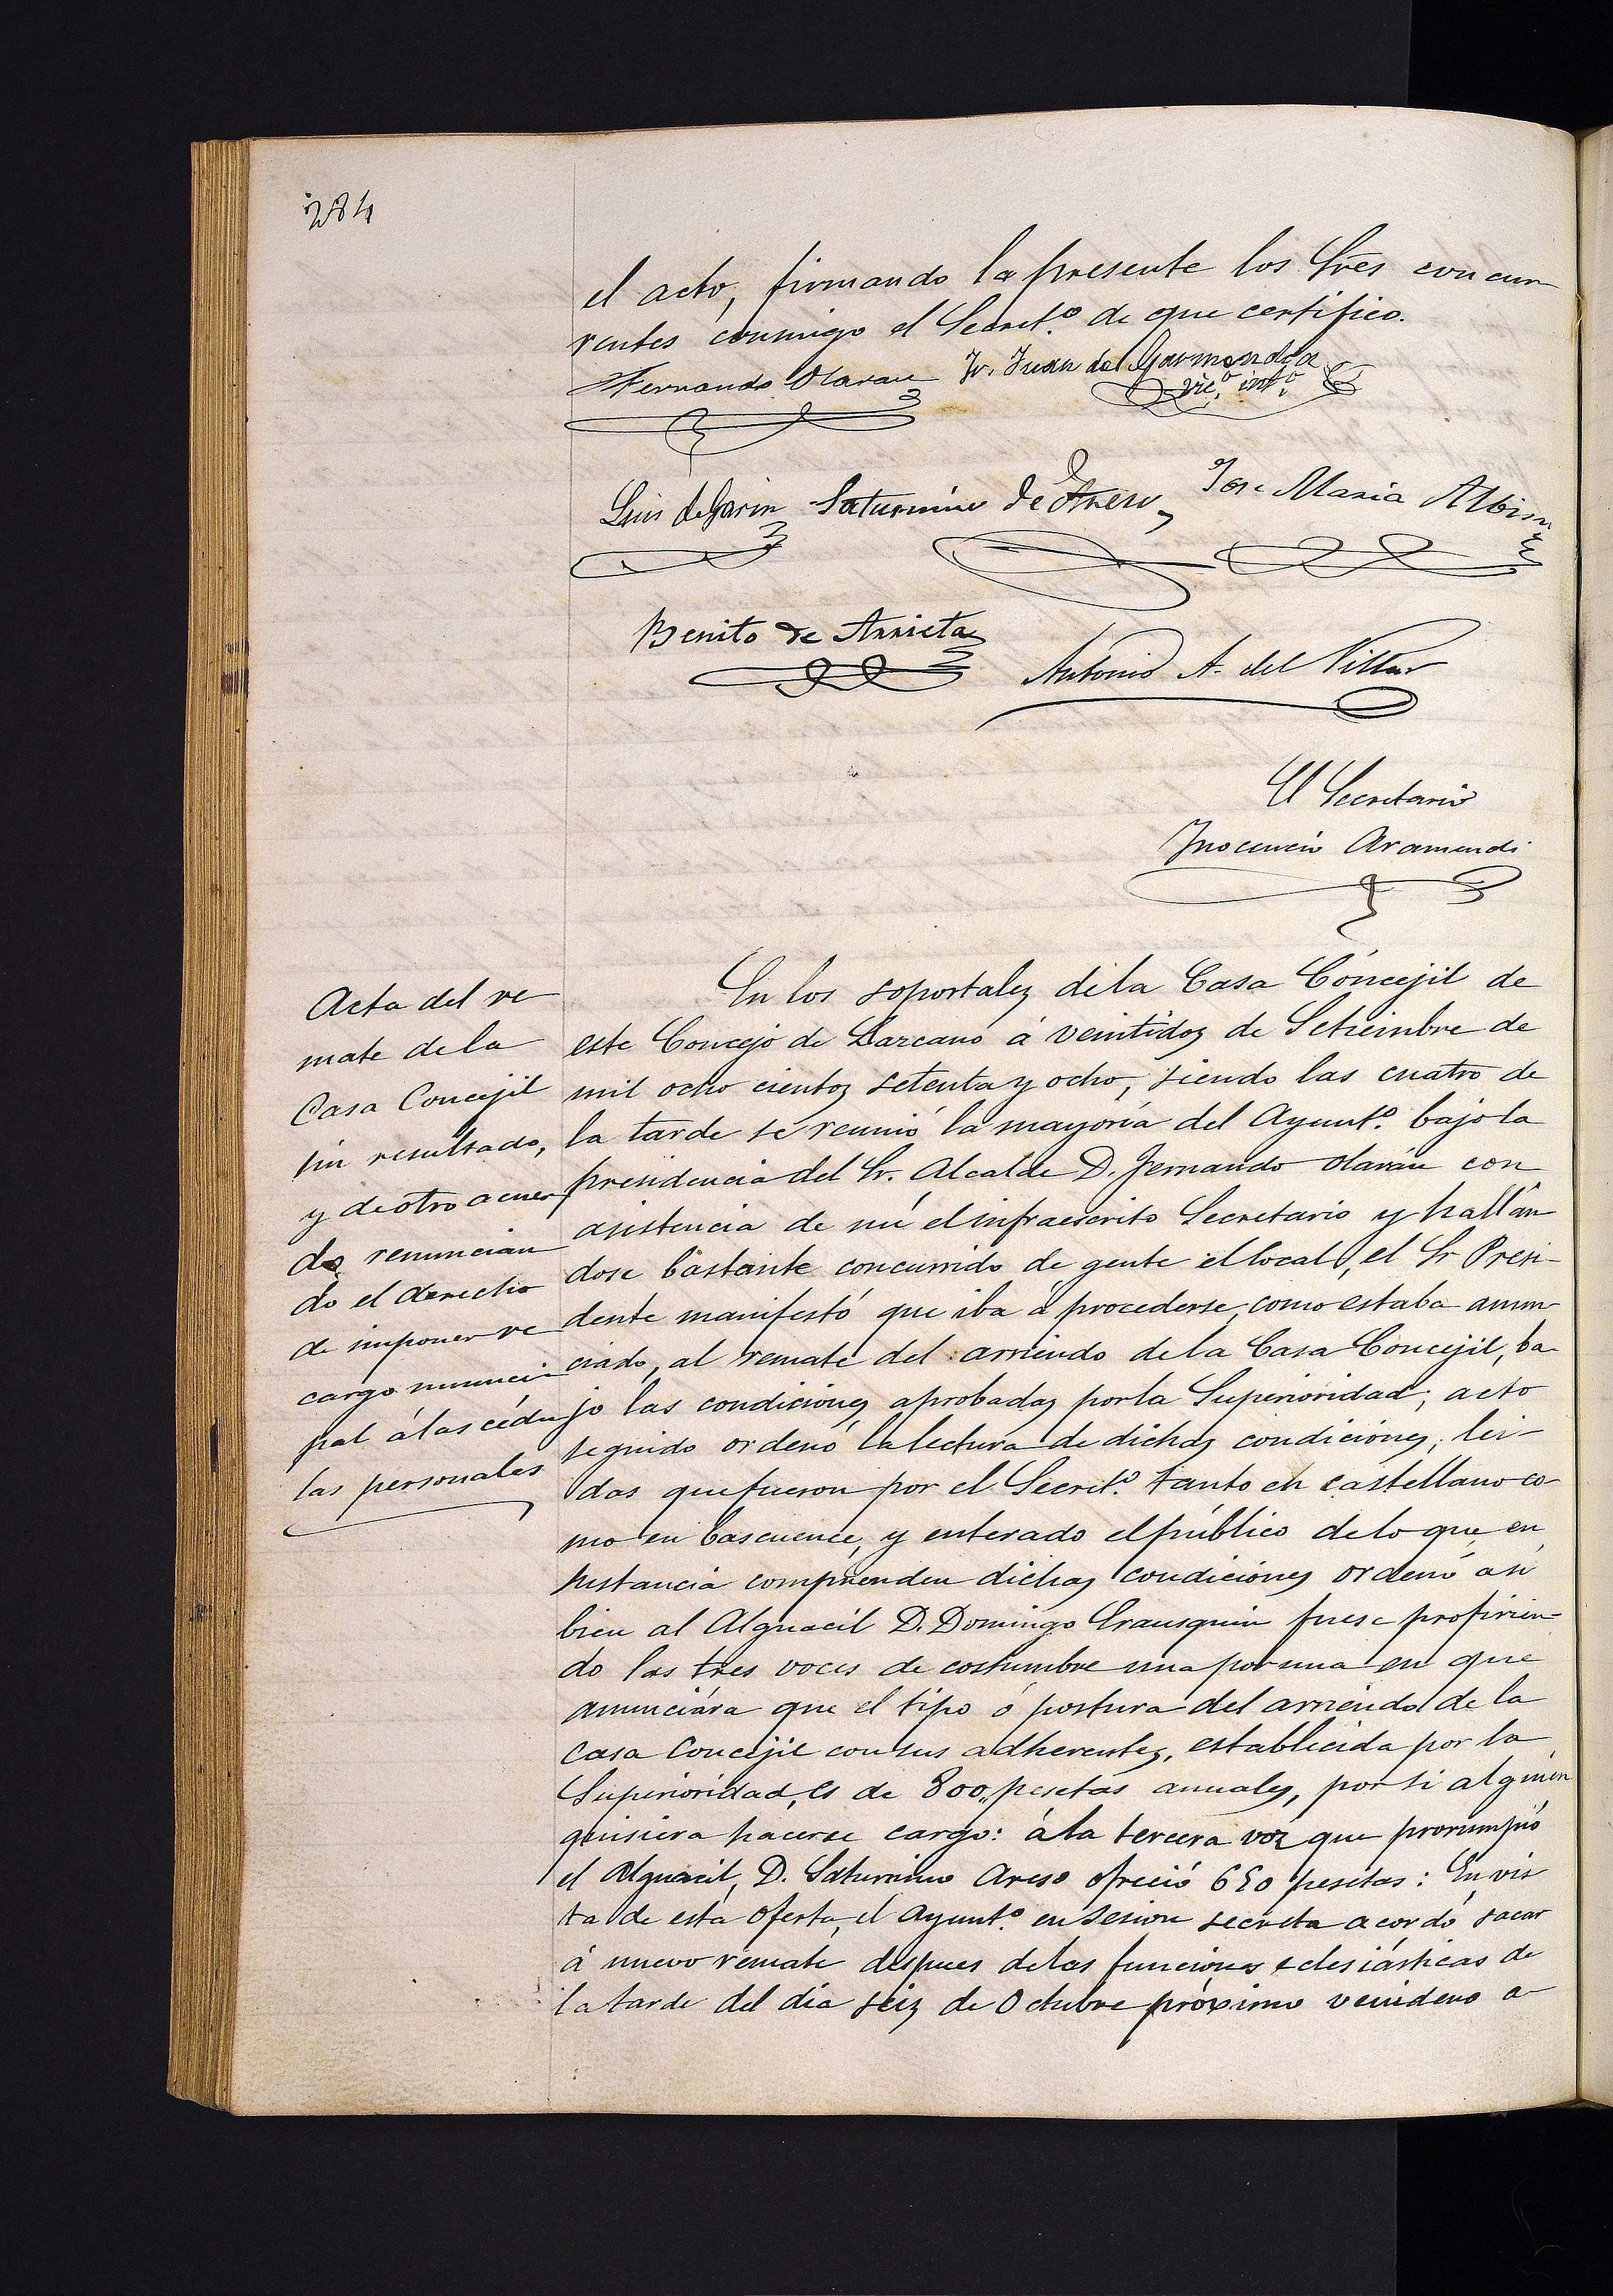 284
el acto, firmando la presente los Sres concur
rentes conmigo el Secret.º de que certifico.
Fernando Olaran Fr. Juan de Garmendia
vic.º int.º
Luis de Garin Saturnino de Areso Jose Maria Albisu
Benito de Arrieta
Antonio A. del Villar
El Secretario
Inocencio Aramendi
Acta del re
mate de la
Casa Concejil
sin resultado,
y de otro acuer
do renuncian
do el derecho
de imponer re
cargo munici
pal á las cédu
las personales
En los soportales de la Casa Concejil de
este Concejo de Lazcano á veintidos de Setiembre de
mil ocho cientos setenta y ocho, siendo las cuatro de
la tarde se reunió la mayoría del Ayunt.º bajo la
presidencia del Sr. Alcalde D. Fernando Olarán con
asistencia de mí el infraescrito Secretario y hallán
dose bastante concurrido de gente el local, el Sr Presi-
dente manifestó que iba á procederse, como estaba anun
ciado, al remate del arriendo de la Casa Concejil, ba
jo las condiciones aprobadas por la Superioridad; acto
seguido ordenó la lectura de dichas condiciones; lei-
das que fueron por el Secret.º tanto en castellano co-
mo en bascuence, y enterado el público de lo que en
sustancia comprenden dichas condiciones ordenó así
bien al Alguacil D. Domingo Erausquin fuese profirien-
do las tres voces de costumbre una por una en que
anunciára que el tipo ó postura del arriendo de la
Casa Concejil con sus adherentes, establecida por la
Superioridad, es de 800,, pesetas anuales, por si alguien
quisiera hacerse cargo: á la tercera voz que prorumpió
el Alguacil, D. Saturnino Areso ofreció 650 pesetas: En vis
ta de esta oferta, el Ayunt.º en sesion secreta acordó sacar
á nuevo remate despues de las funciones eclesiásticas de
la tarde del dia seis de Octubre próximo venidero a